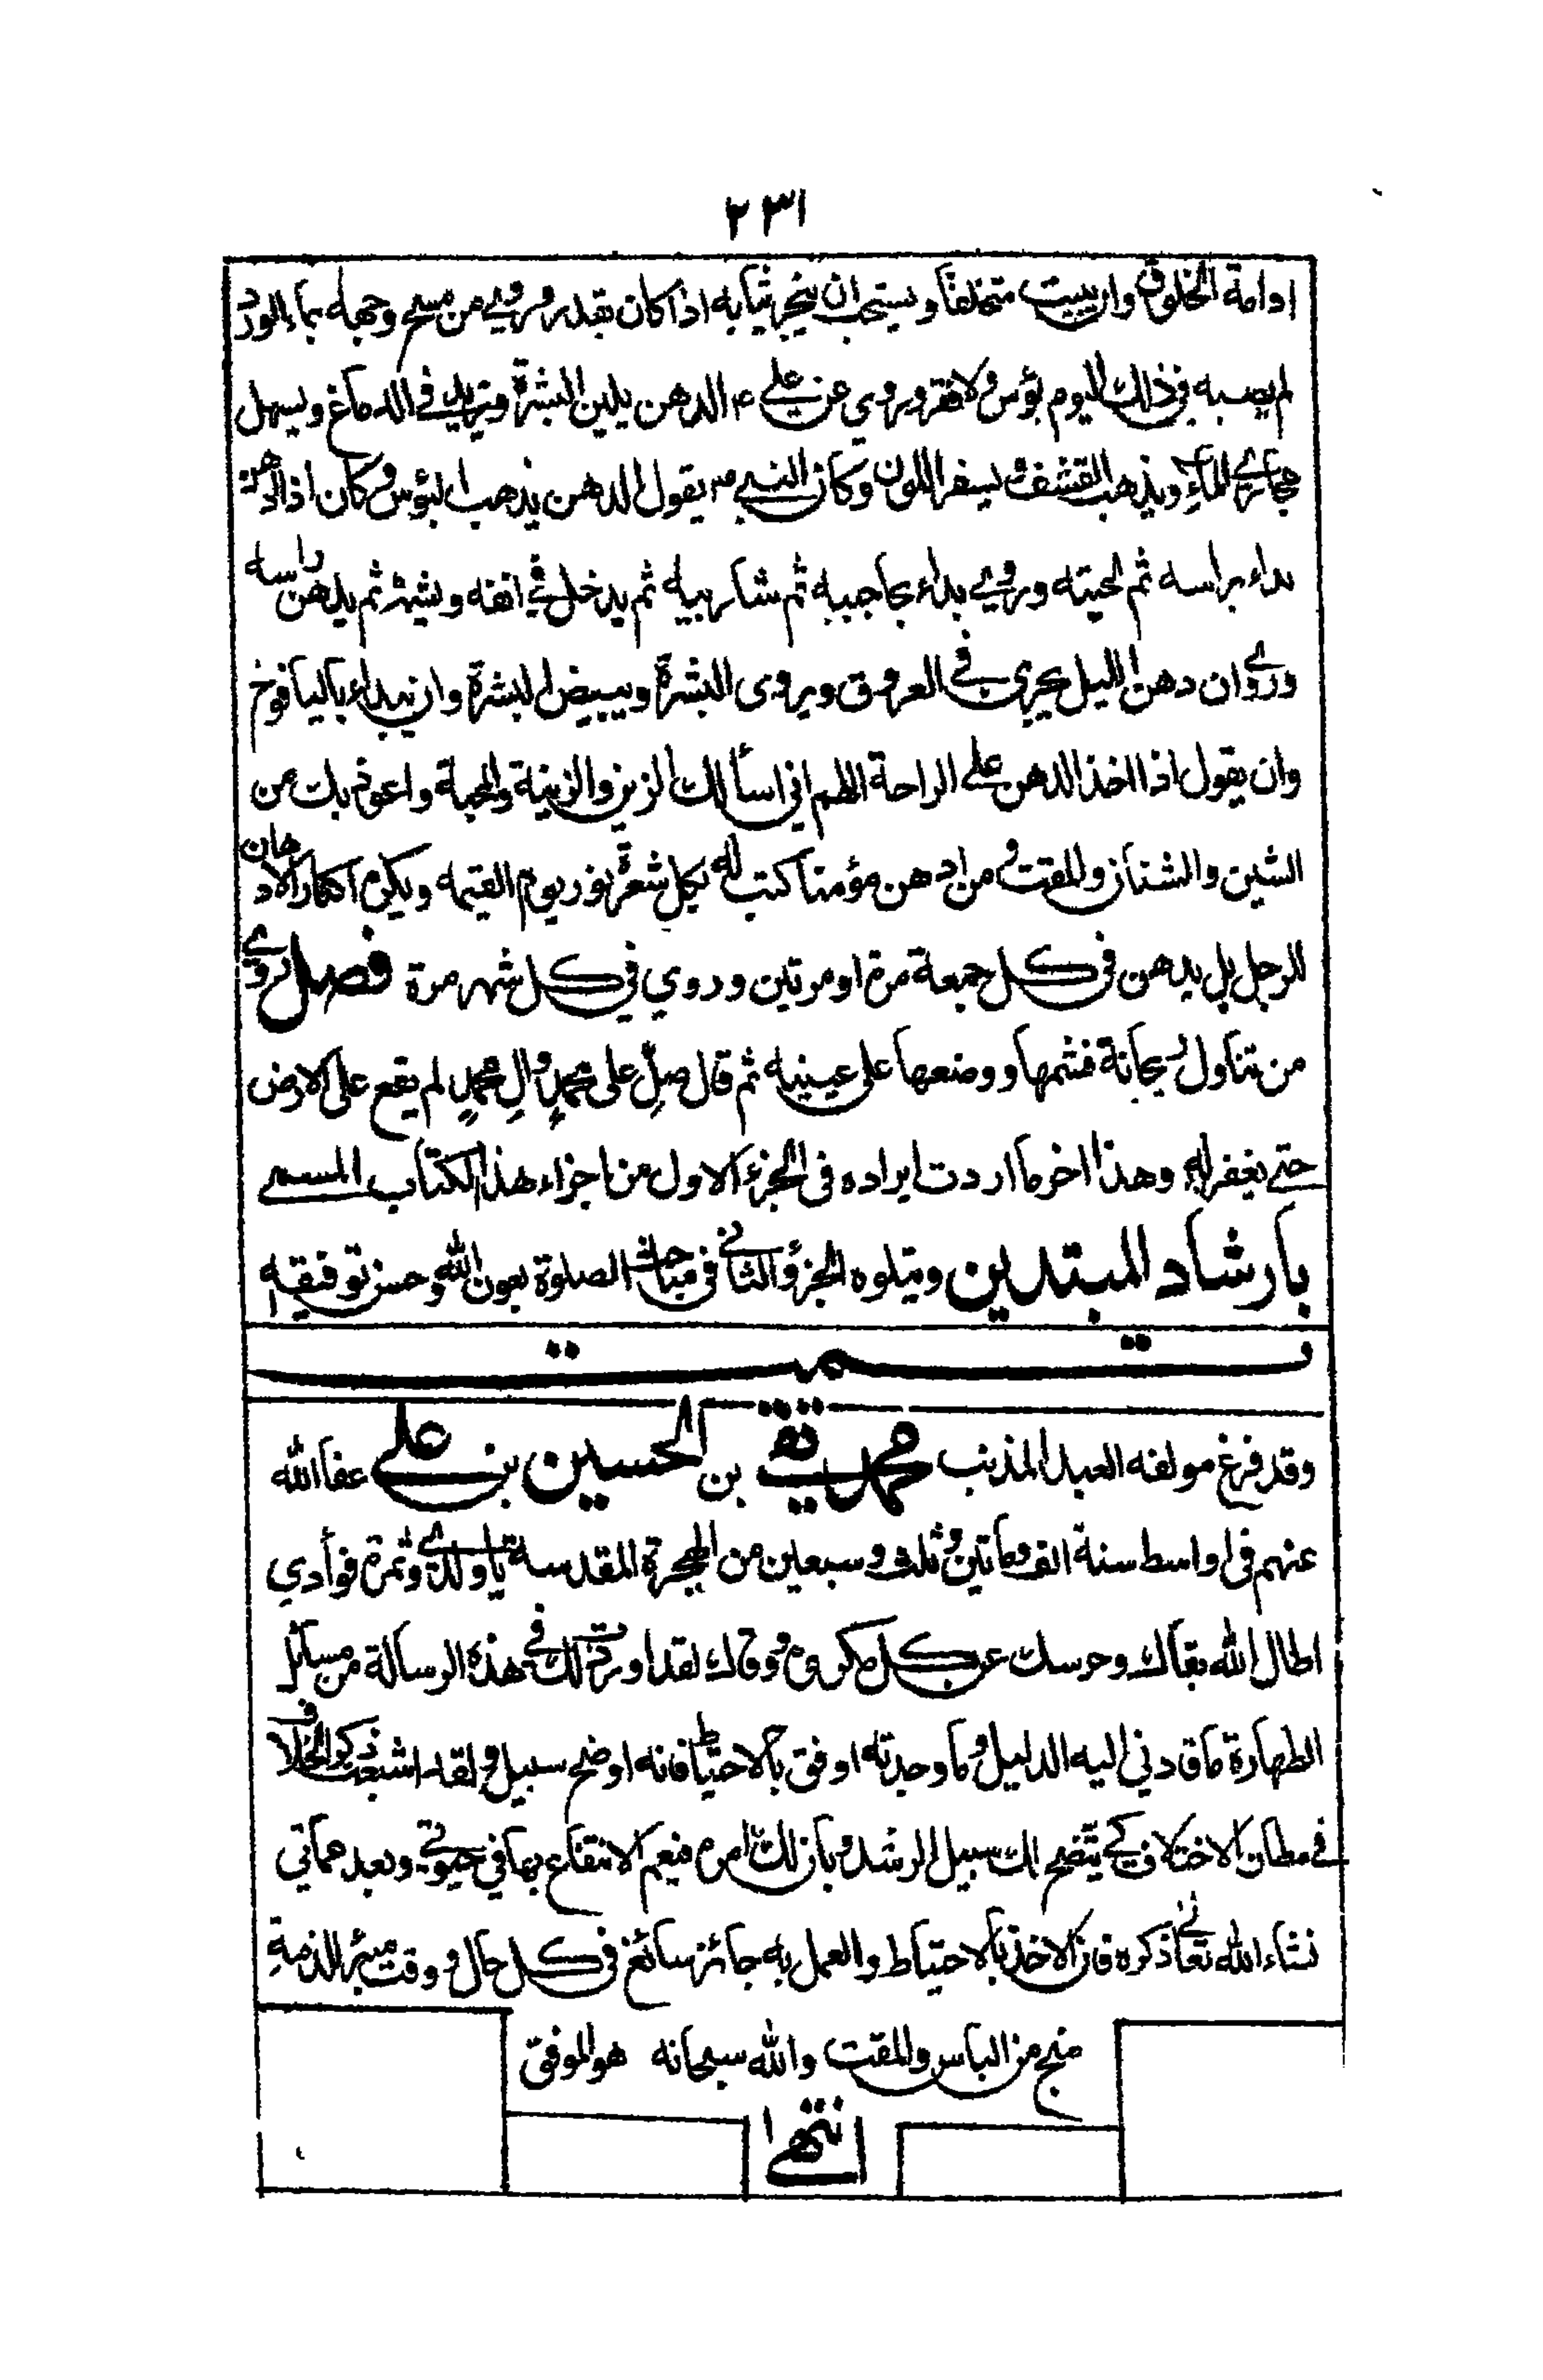 ٢٣١
ادامة الخلوق وان يبيت متخلقا ويستحب ان يبخر ثيابه اذا كان يقدر وروي من مسح وجهه بماء الورد
لم يصبه في ذلك اليوم بؤس ولا فقر وروي عن علي ع الدهن يلين البشرة ويزيد في الدماغ ويسهل
مجاري الماء ويذهب القشف ويسفر اللون وكان النبي ص يقول الدهن يذهب البؤس وكان اذا ادهن
بداء براسه ثم لحيته وروي بداء بحاجبيه ثم شاربيه ثم يدخل في انفه ويشمه ثم يدهن راسه
وروي ان دهن الليل يجري في العروق ويروى البشرة ويبيض البشرة وان يبداء باليافوخ
وان يقول اذا اخذ الدهن على الراحة اللهم اني اسألك الزين والزينة والمحبة واعوذ بك من
الشين والشنآن والمقت ومن ادهن مؤمنا كتب له بكل شعرة نور يوم القيمه ويكره اكثار الادهان
للرجل بل يدهن في كل جمعة مرة او مرتين وروي في كل شهر مرة فصل روي
من تناول ريحانة فشمها ووضعها على عينيه ثم قال صلِّ على محمدٍ والِ محمدٍ لم يقع على الارض
حتى يغفر له وهذا اخر ما اردت ايراده في الجزء الاول من اجزاء هذا الكتاب المسمى
بارشاد المبتدين ويتلوه الجزؤ الثاني في مباحث الصلوة بعون الله وحسن توفيقه
تمت
وقد فرغ مولفه العبد المذنب محمد تقي بن الحسين بن علي عفا الله
عنهم في اواسط سنة الف وماتين وثلث وسبعين من الهجرة المقدسة يا ولدي وثمرة فوأدي
اطال الله بقاك وحرسك عن كل مكروه ووقاك لقد اوردت لك في هذه الرسالة من مسائل
الطهارة ما قادني اليه الدليل وما وجدته اوفق بالاحتياط فانه اوضح سبيل ولقد اشبعت ذكر الخلاف
في مظان الاختلاف كي يتضح لك سبيل الرشد وبان لك امره فيعم الانتفاع بها في حيوتي وبعد مماتي
نشاء الله تعالى ذكره فان الاخذ بالاحتياط والعمل به جائز سائغ في كل حال ووقت مبرئ الذمة
منج من الباس والمقت والله سبحانه هو الموفق
انتهى